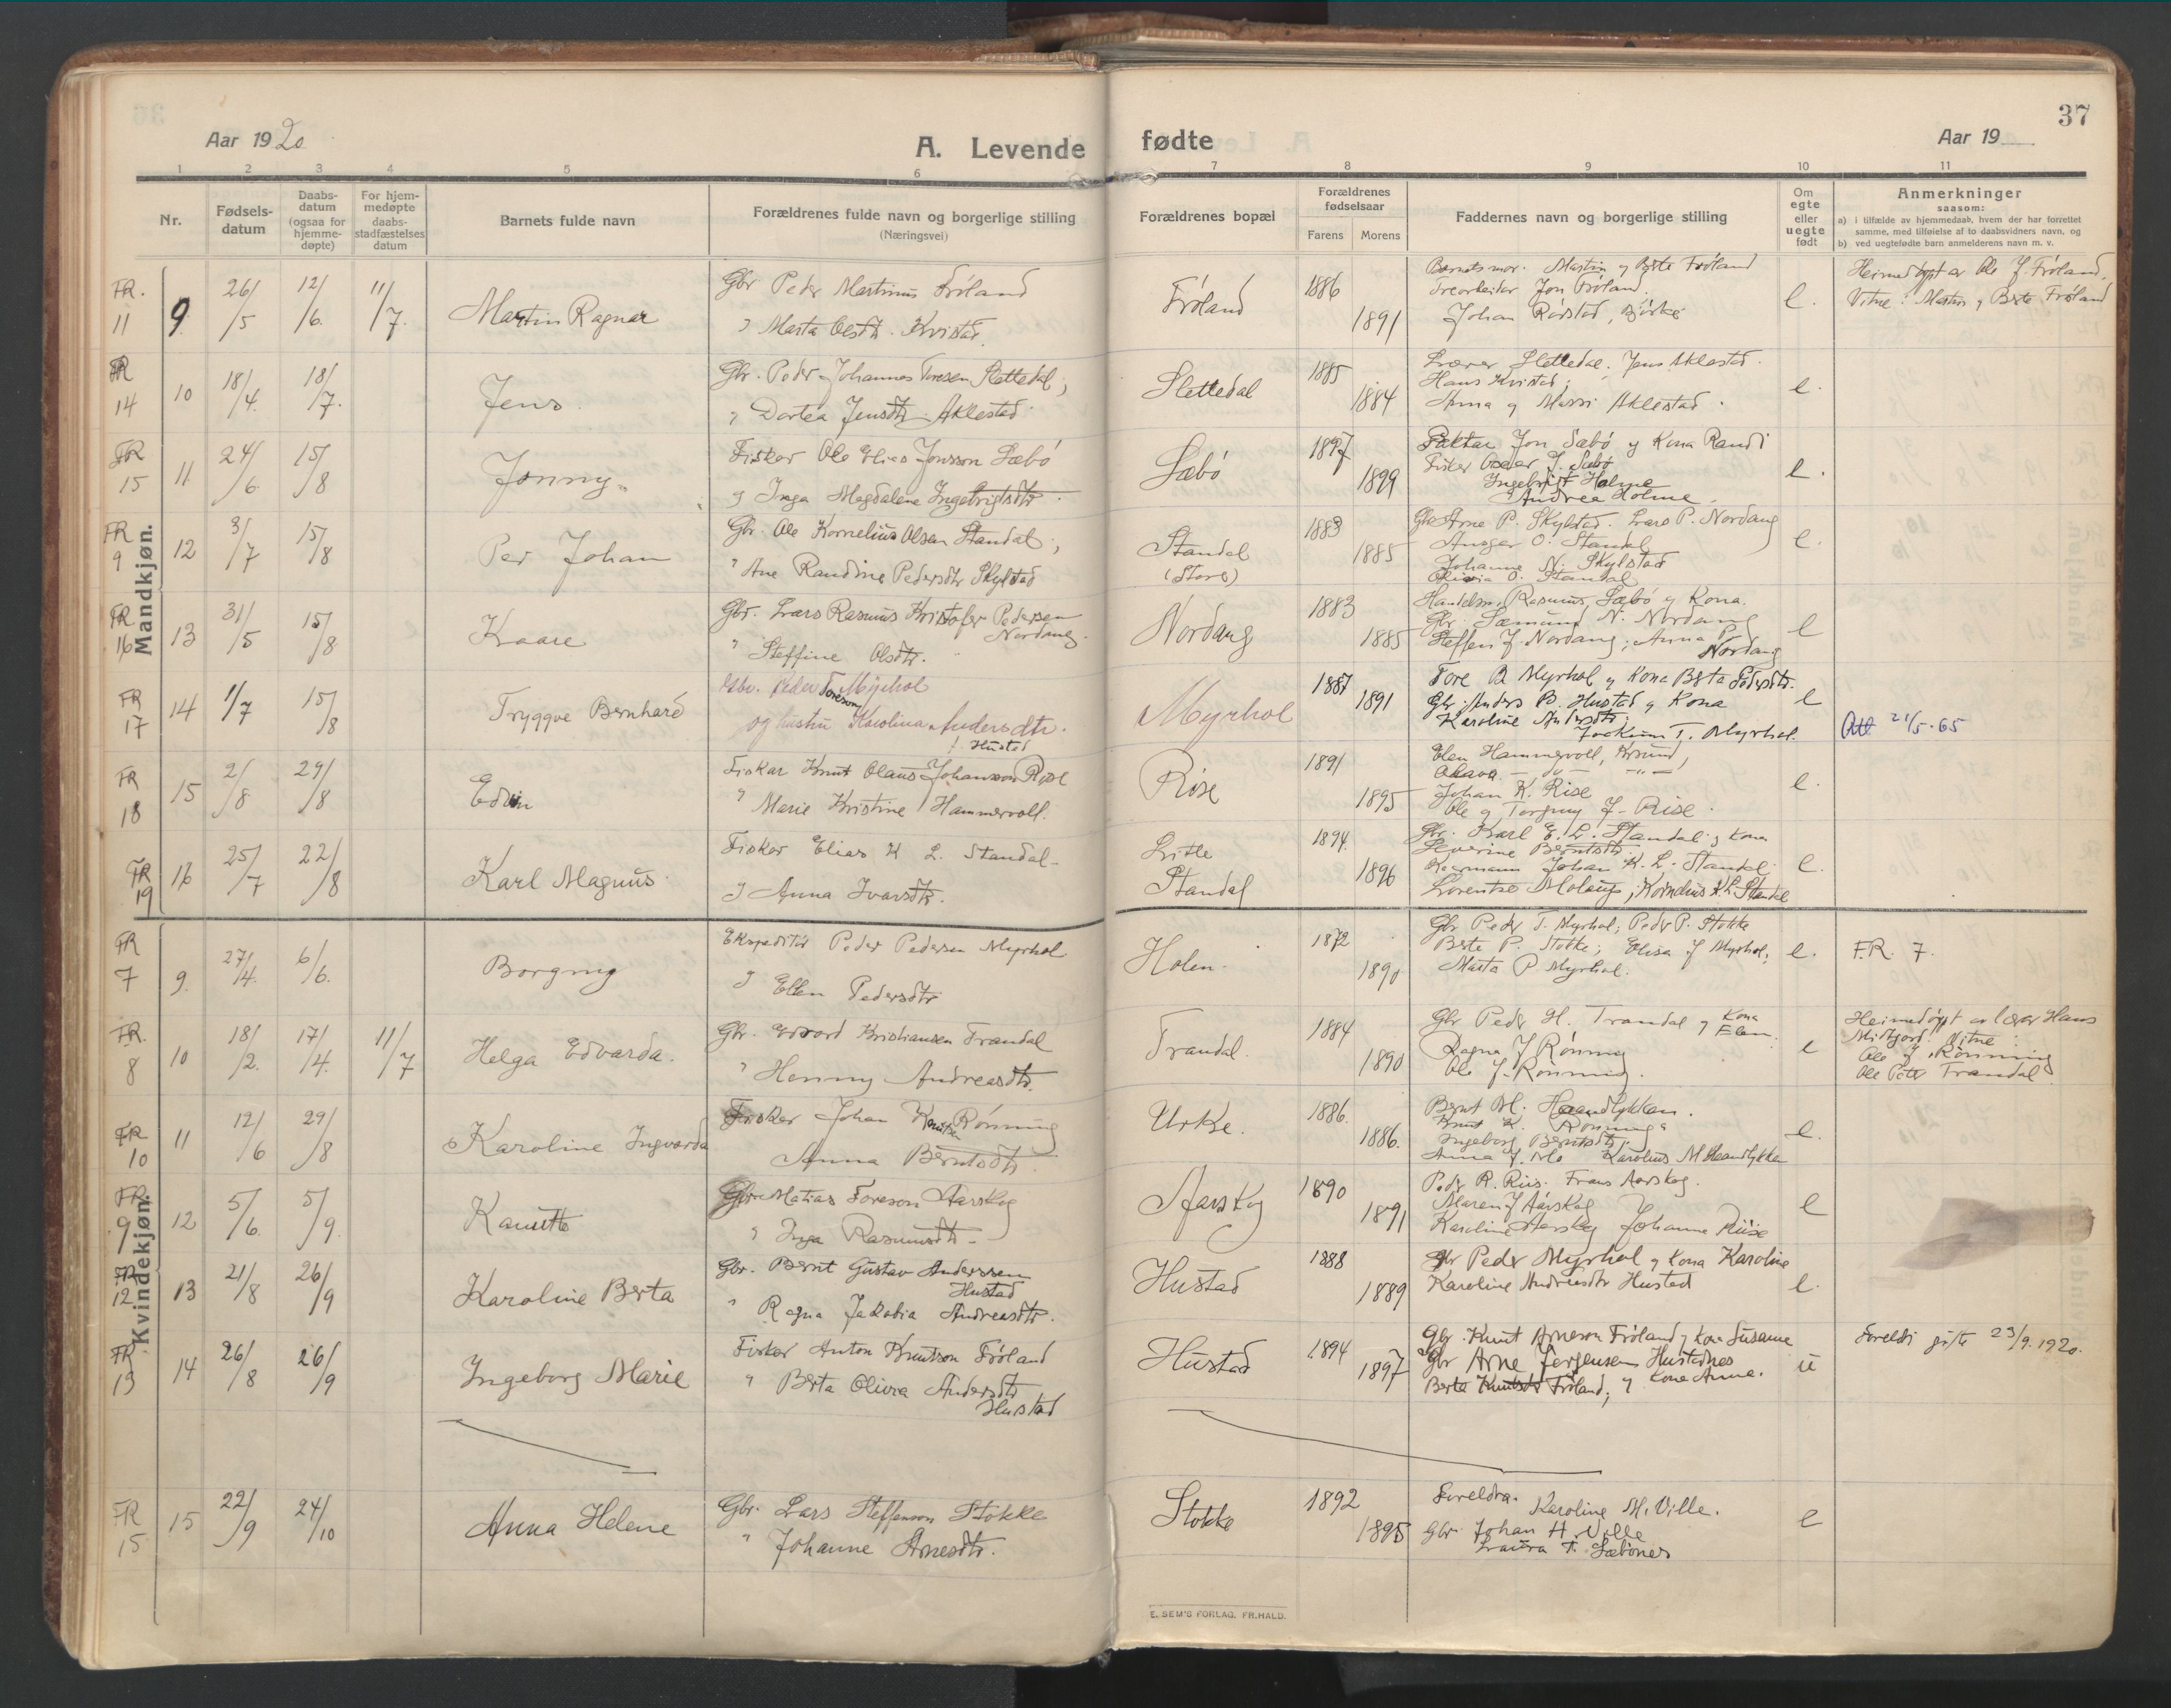 37
Aar 1920
A. Levende fødte
Aar 19
1 2 3 4 5 6 7 8 9 10 11
Nr.
Fødsels-
datum
Daabs-
datum
(ogsaa for
hjemme-
døpte)
For hjem-
medøpte
daabs-
stadfæstelses
datum
Barnets fulde navn
Forældrenes fulde navn og borgerlige stilling
(Næringsvei)
Forældrenes bopæl
Forældrenes
fødselsaar
Farens Morens
Faddernes navn og borgerlige stilling
Om
egte
eller
uegte
født
Anmerkninger
saasom:
a) i tilfælde av hjemmedaab, hvem der har forrettet
samme, med tilføielse af to daabsvidners navn, og
b) ved uegtefødte barn anmelderens navn m. v.
Mandkjøn.
FR. 11 9 26/5 12/6 11/7 Martin Ragnar
Gbr Peder Martinus Fróland
Marta Olsdtr. Kvistad
Fróland 1886 1891
Barnets mor. Martin og Berte Fróland
Jon Fróland
Johan Rørstad, Bjørke
e.
Heimedøypt av Ole J. Fróland.
Vitne: Martin og Berte Fróland
FR 14 10 18/4 18/7 Jens
Gbr. Peder Johannes Toresen Slettedal,
" Dortea Jensdtr Aklestad
Slettedal 1885 1884
Lærer Slettedal. Jens Aklestad.
Hans Kvistad,
Anna og Massi Aklestad.
e.
FR 15 11 24/6 15/8 Jonny
Fisker Ole Elias Jonsson Sæbó
og Inga Magdalene Ingebrigtsdtr
Sæbó 1897 1899
Jon Sæbó og Kona Randi
Fisker Oscar J. Sæbó
Ingebrigt Holme
Andrea Holme
e.
FR 9 12 3/7 15/8 Per Johan
Gbr. Ole Kornelius Olsen Standal,
" Ane Randine Pedersdtr Skylstad
Standal
(Store)
1883 1885
Gbr Arne P. Skylstad. Lars P. Nordang
Ansgar O. Standal
Johanne N. Skylstad
Olivia O. Standal
e.
FR 16 13 31/5 15/8 Kaare
Gbr. Lars Rasmus Kristofer Pedersen
Nordang.
" Steffine Olsdtr.
Nordang 1883 1885
Handelsm. Rasmus Sæbó og Kona.
Gbr. Sæmund N. Nordang
Steffen J. Nordang; Anna P.
Nordang
e
FR 17 14 1/7 15/8 Tryggve Bernhard
Gbr. Peder Toreson Myrhol
og hustru Karolina Andersdtr.
f. Hustad
Myrhol 1887 1891
Tore B Myrhol og Kona Berta Pedersdtr.
Gbr. Anders B. Hustad og Kona
Karoline Andersdtr;
Joakim T. Myrhol.
e
Att. 21/5-65
FR 18 15 2/8 29/8 Edvin
Fiskar Knut Olaus Johansson Rise
" Marie Kristine Hammervoll.
Rise 1891 1895
Elen Hammervoll,
Olava
Johan K. Rise
Ole og Torgny J. Rise.
e.
FR 19 16 25/7 22/8 Karl Magnus
Fisker Elias K L. Standal
og Anna Ivarsdtr.
Litle
Standal
1894. 1896
Gbr. Karl E. L. Standal og Kona
Severine Berntsdtr.
Johan K. L. Standal
Lorentse Molaup, Kornelius K L. Standal
e.
Kvindekjøn.
FR 7 9. 27/4 6/6 Borgny
Ekspeditør Peder Pedersen Myrhol
og Ellen Pedersdtr
Holen 1872 1890
Gbr Peder T. Myrhol; Peder P. Stokke
Berte P. Stokke; Elisa J Myrhol,
Marta P Myrhol.
e.
F.R. 7.
FR. 8 10 18/2 17/4 11/7 Helga Edvarda.
Gbr. Edvard Kristiansen Trandal
" Henny Andreasdtr.
Trandal. 1884 1890
Gbr Peder H. Trandal og Kona
Elen
Ragna J Rónning
Ole J. Rónning.
e
Heimedøypt av lærer Hans
Vitne:
Ole J. Rónning
Ole Peter Trandal
FR 10 11 12/6 29/8 Karoline Ingvarda
Fisker Johan Knutsen Rónning
Anna Berntsdtr
Urke. 1886. 1886.
Bernt M. Haandlykken.
Knut K. Rónning
Ingeborg Berntsdtr.
Anna J. Mo Karolius M Haandlykken
e.
FR 9 12 5/6 5/9 Kanutte
Gbr Matias Toreson Aarskog
" Inga Rasmusdtr
Aarskog 1890 1891
Peder R. Riis. Frans Aarskog.
Maren J Aarskog
Karoline Aarskog Johanne Riise
e
FR 12 13 21/8 26/9 Karoline Berta
Gbr. Bernt Gustav Anderssen
Hustad
" Ragna Jakobia Andreasdtr.
Hustad 1888 1889
Gbr Peder Myrhol og Kona Karoline
Karoline Andreasdtr Hustad
e.
FR 13 14 26/8 26/9 Ingeborg Marie
Fisker Anton Knutson Fróland
" Berta Olivia Andersdtr
Hustad
Hustad 1894 1897
Gbr. Knut Arneson Fróland og Kona Susanne
Gbr Arne Jørgensen Hustadnes
Berta Knutsdtr Fróland; og Kona Anna.
u
Foreldri gifte 23/9.1920.
FR 15 15 22/9 24/10 Anna Helene
Gbr. Lars Steffenson Stokke
" Johanne Arnesdtr.
Stokke 1892 1895
Foreldra. Karoline M. Ville.
Gbr. Johan H. Ville
Laura T. Sæbónes
e
E. SEM'S FORLAG, FR.HALD.